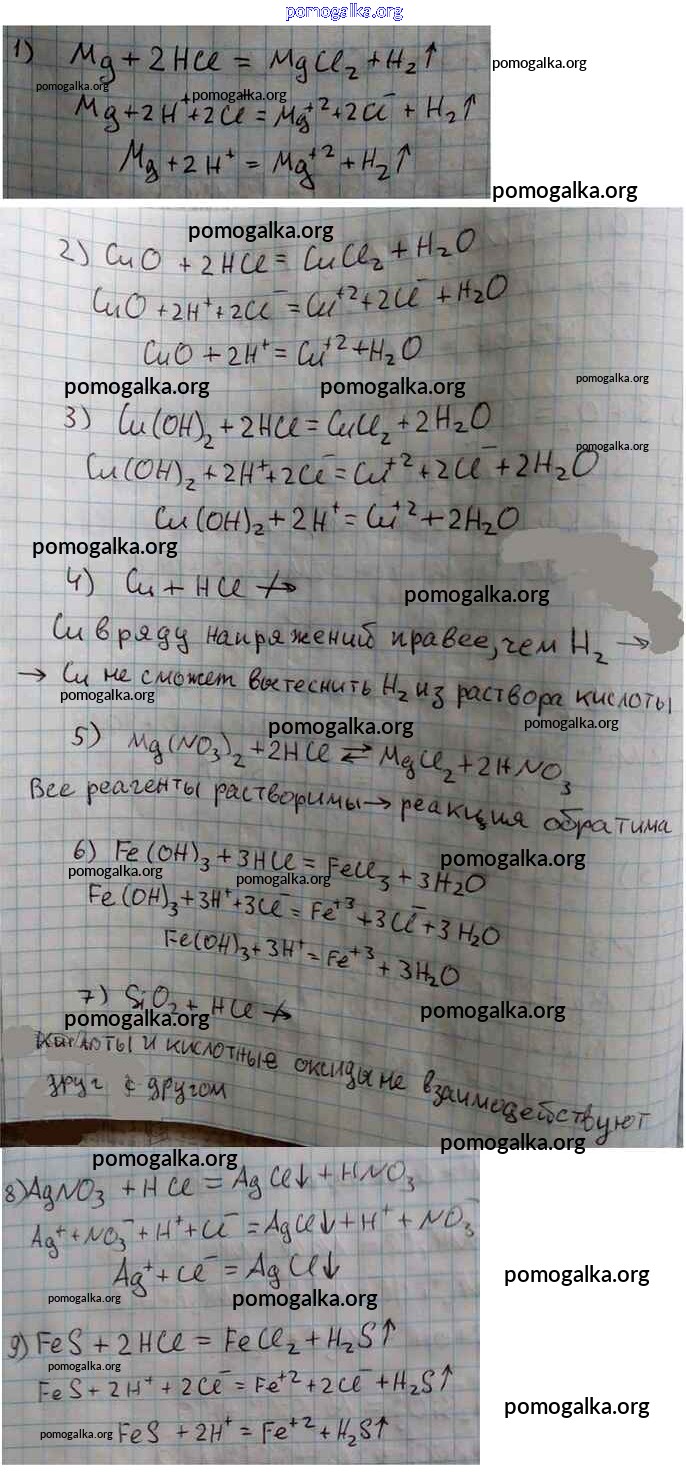 pomogalka.org
1) Mg + 2HCl = MgCl₂ + H₂↑
pomogalka.org
pomogalka.org
pomogalka.org
Mg + 2H⁺ + 2Cl⁻ = Mg⁺² + 2Cl⁻ + H₂↑
Mg + 2H⁺ = Mg⁺² + H₂↑
pomogalka.org
pomogalka.org
2) CuO + 2HCl = CuCl₂ + H₂O
CuO + 2H⁺ + 2Cl⁻ = Cu⁺² + 2Cl⁻ + H₂O
CuO + 2H⁺ = Cu⁺² + H₂O
pomogalka.org
pomogalka.org
pomogalka.org
3) Cu(OH)₂ + 2HCl = CuCl₂ + 2H₂O
pomogalka.org
Cu(OH)₂ + 2H⁺ + 2Cl⁻ = Cu⁺² + 2Cl⁻ + 2H₂O
Cu(OH)₂ + 2H⁺ = Cu⁺² + 2H₂O
pomogalka.org
4) Cu + HCl ↛
pomogalka.org
Cu в ряду напряжений правее, чем H₂ →
→ Cu не сможет вытеснить H₂ из раствора кислоты
pomogalka.org
pomogalka.org
pomogalka.org
5) Mg(NO₃)₂ + 2HCl ⇄ MgCl₂ + 2HNO₃
Все реагенты растворимы → реакция обратима
6) Fe(OH)₃ + 3HCl = FeCl₃ + 3H₂O
pomogalka.org
pomogalka.org
pomogalka.org
Fe(OH)₃ + 3H⁺ + 3Cl⁻ = Fe⁺³ + 3Cl⁻ + 3H₂O
Fe(OH)₃ + 3H⁺ = Fe⁺³ + 3H₂O
7) SiO₂ + HCl ↛
pomogalka.org
pomogalka.org
Кислоты и кислотные оксиды не взаимодействуют
друг с другом
pomogalka.org
pomogalka.org
8) AgNO₃ + HCl = AgCl↓ + HNO₃
Ag⁺ + NO₃⁻ + H⁺ + Cl⁻ = AgCl↓ + H⁺ + NO₃⁻
Ag⁺ + Cl⁻ = AgCl↓
pomogalka.org
pomogalka.org
pomogalka.org
9) FeS + 2HCl = FeCl₂ + H₂S↑
pomogalka.org
FeS + 2H⁺ + 2Cl⁻ = Fe⁺² + 2Cl⁻ + H₂S↑
pomogalka.org
pomogalka.org
FeS + 2H⁺ = Fe⁺² + H₂S↑